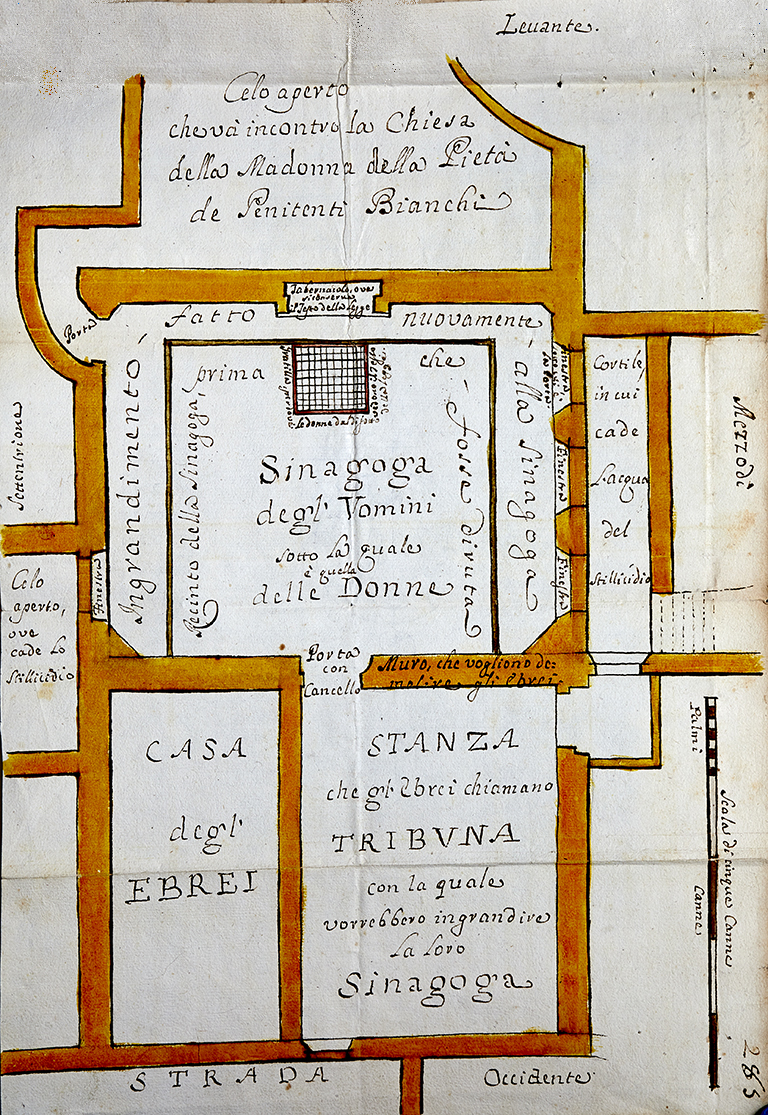 Levante.
Celo aperto
che và incontro la Chiesa
della Madonna della Pietà
de Penitenti Bianchi
Tabernacolo, ove
si conserva
il Testo della Legge
Porta
fatto
nuovamente
Ingrandimento
alla Sinagoga
prima
che
fosse divuta
Recinto della Sinagoga,
le donne da disopra
vedono il Testo
della Legge.
Sinagoga
degl' Vomini
sotto la quale
è quella
delle Donne
Finestra
Finestra
Finestra
Finestra
Cortile,
in cui
cade
l'acqua
del
stillicidio
Mezzodì
Settentrione
Celo
aperto,
ove
cade lo
stillicidio
Porta
con
Cancello
Muro, che vogliono de:
molire gli Ebrei.
CASA
degl'
EBREI
STANZA
che gl' Ebrei chiamano
TRIBVNA
con la quale
vorrebbero ingrandire
la loro
Sinagoga
Palmi
Canne
Scala di cinque Canne
STRADA
Occidente.
285